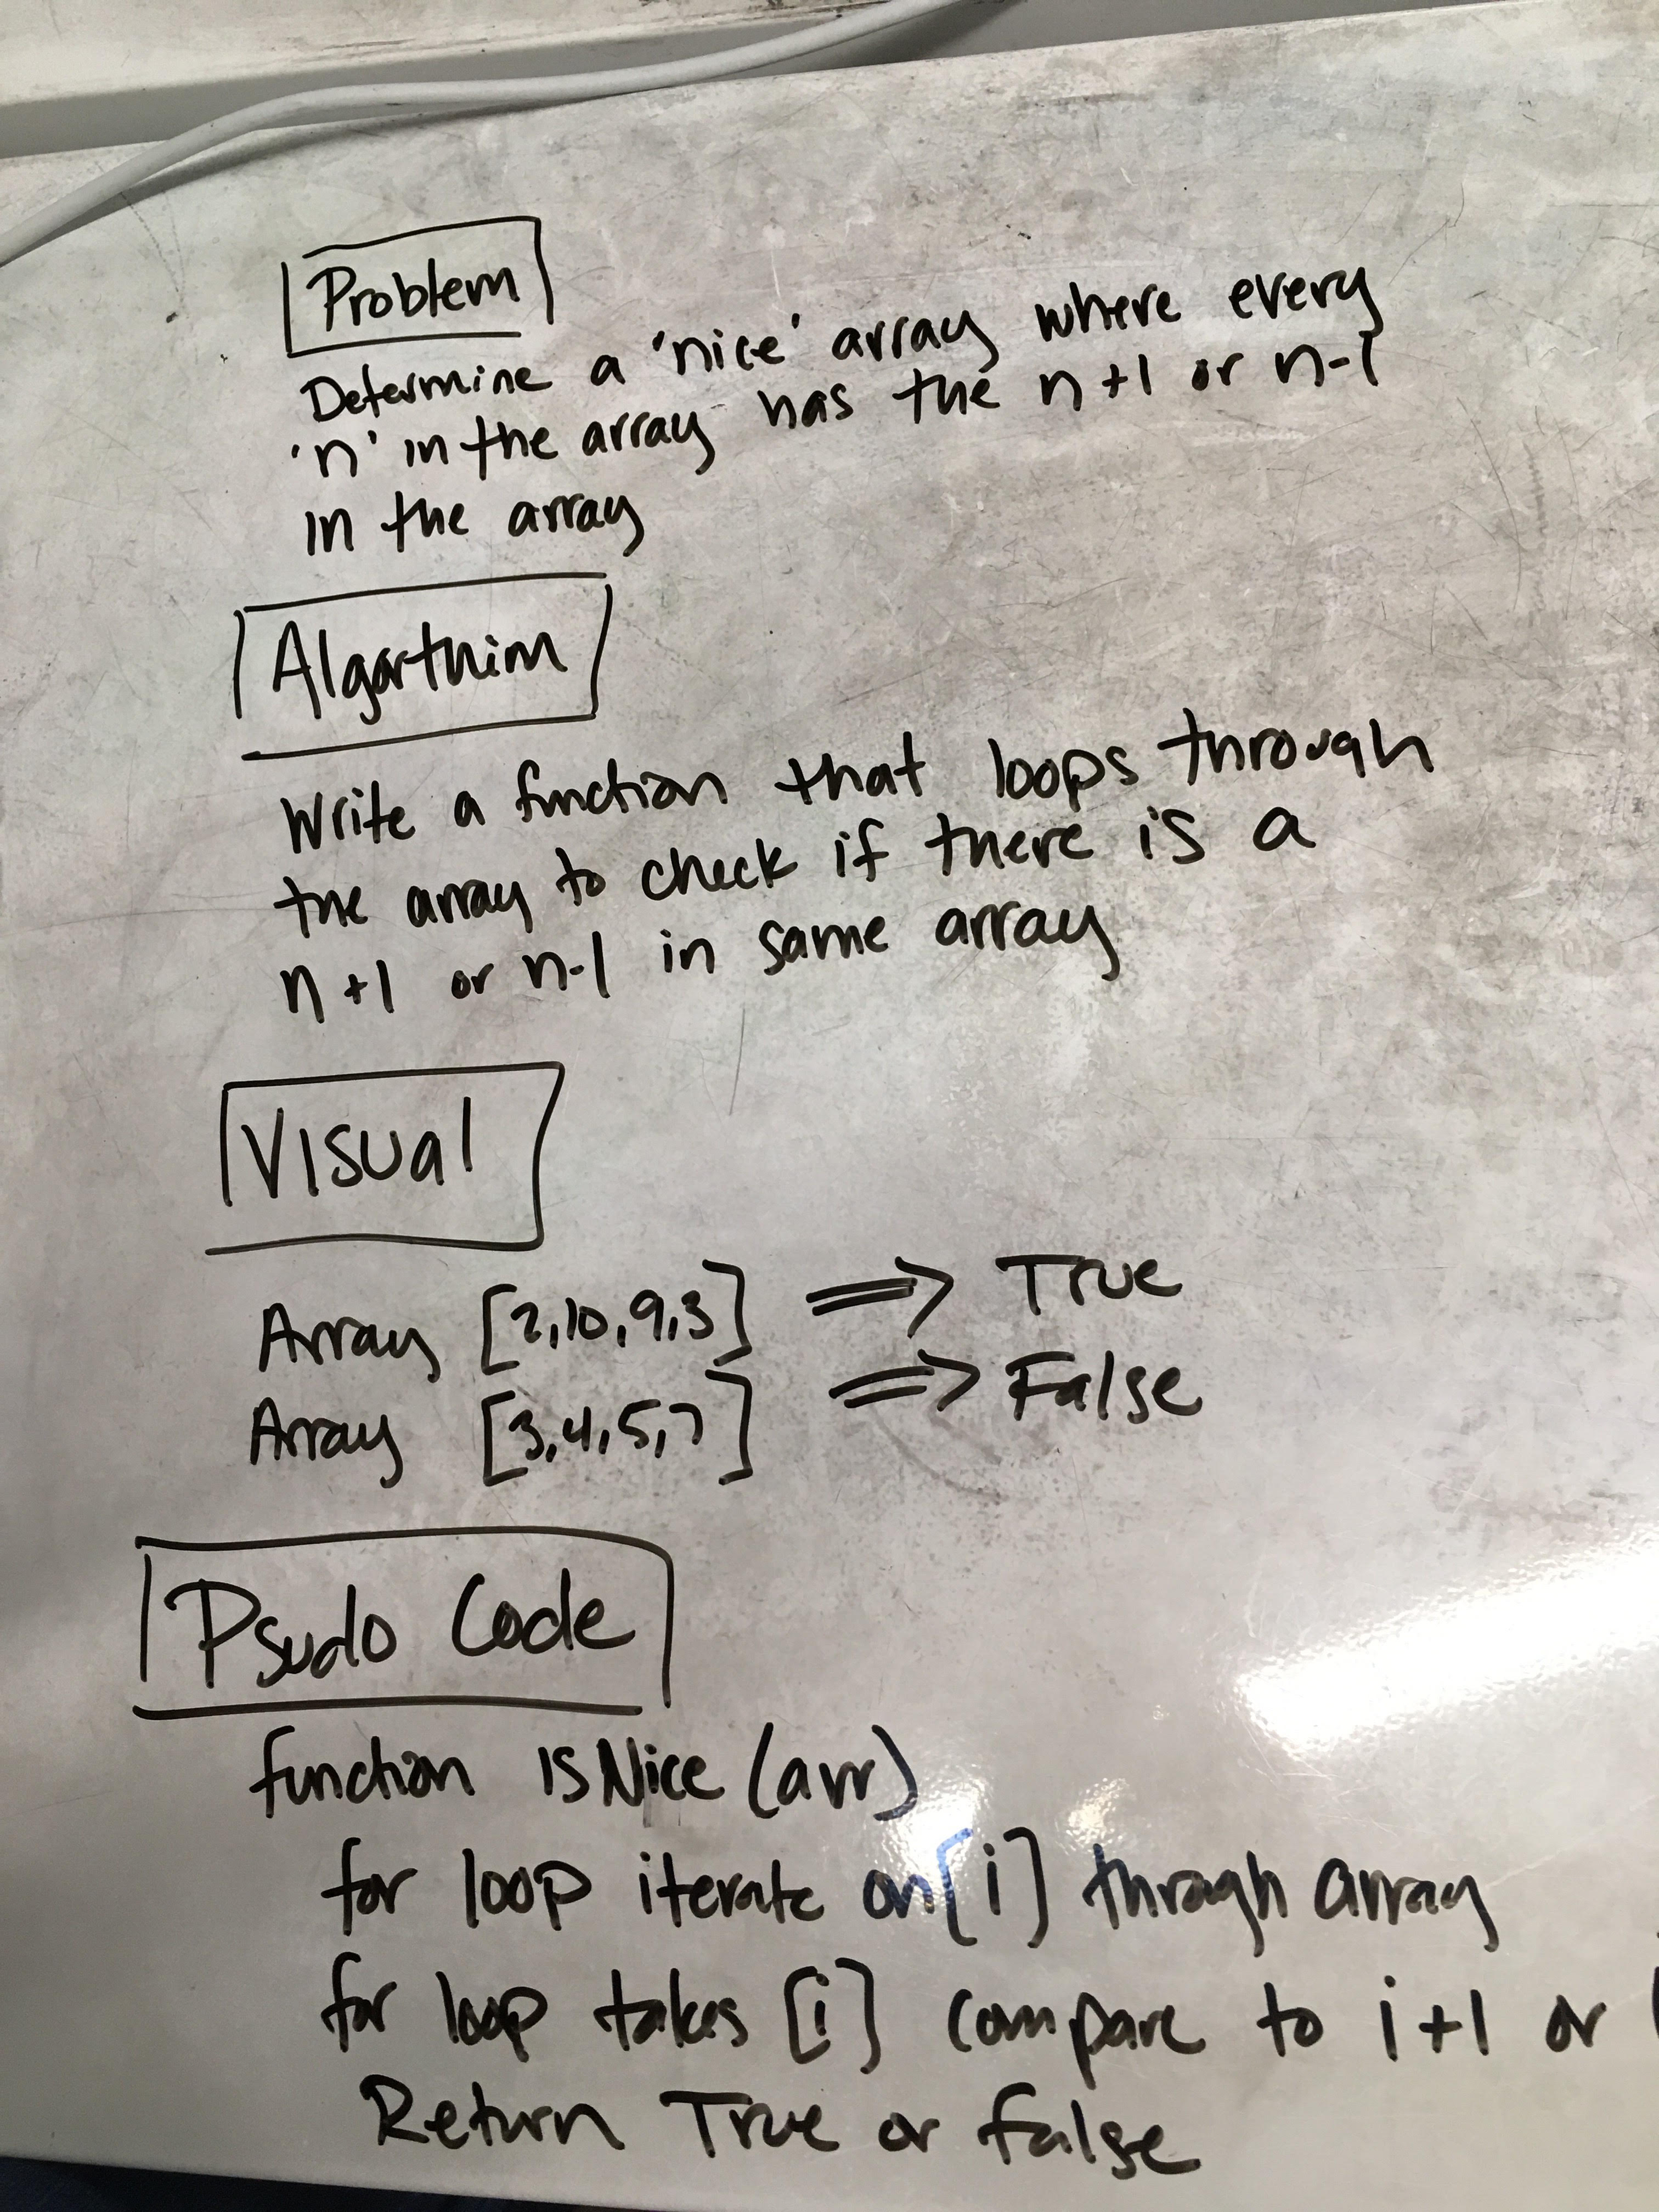 Problem
Determine a 'nice' array where every
'n' in the array has the n+1 or n-1
in the array
Algorthim
Write a function that loops through
the array to check if there is a
n+1 or n-1 in same array
Visual
Array [2,10,9,3] => True
Array [3,4,5,7] => False
Psudo Code
function isNice (arr)
for loop iterate on [i] through array
for loop takes [i] compare to i+1 or
Return True or false